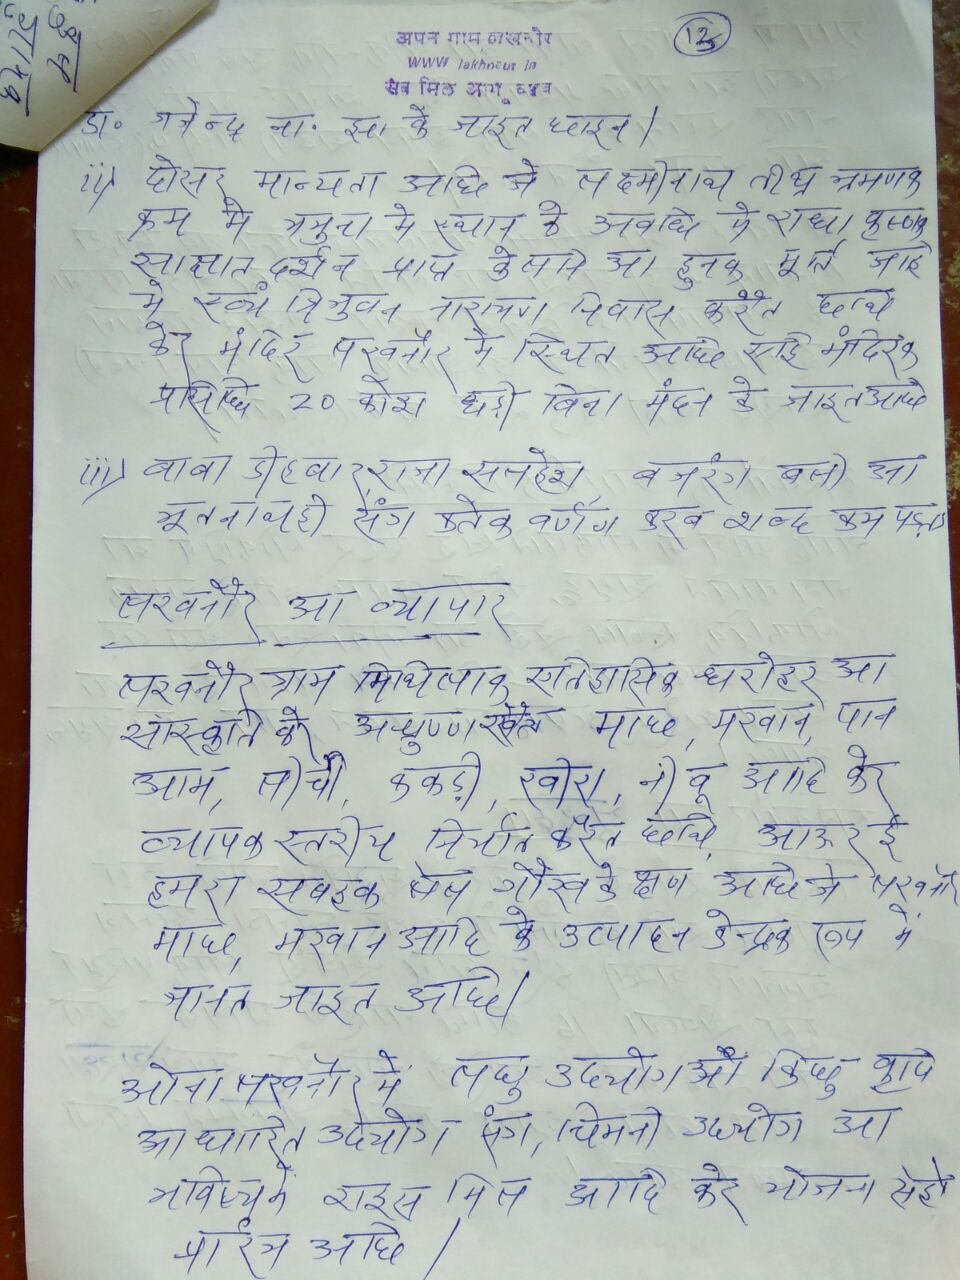 अपन गाम लखनौर
12
www lakhnaur.in
सब मिल आगू बढ़ब
डा॰ गजेन्द्र ना॰ झा के जाइत छाइन।
ii) दोसर मान्यता अछि जे लक्ष्मीनाथ तीर्थ भ्रमणक
क्रम में जमुना में स्नान के अवधि में राधा कृष्णक
साक्षात दर्शन प्राप्त केलनि आ हुनक मूर्ति जाहि
में स्वयं त्रिभुवन नारायण निवास करैत छथि
केर मंदिर लखनौर में स्थित अछि एहि मंदिरक
प्रसिद्धि 20 कोश धरी बिना मंदन के जाइत अछि
iii) बाबा डीहवार, राजा सलहेश बजरंग बली आ
भूतनाथहो संग कतेक वर्णण करब शब्द कम पड़त
लखनौर आ व्यापार
लखनौर ग्राम मिथिलाक एतिहासिक धरोहर आ
सांस्कृति के अक्षुण्ण रखैत माछ, मखान, पान
आम, लीची, ककड़ी, खीरा, नीबू आदि केर
व्यापक स्तरीय निर्यात करैत छथि, आऊर ई
हमरा सबहक लेल गौरव के क्षण अछि जे लखनौर
माछ, मखान आदि के उत्पादन केन्द्रक रूप में
जानल जाइत अछि।
ओना लखनौर में लघु उदयोग आ किछु कृषि
आधारित उदयोग संग, चिमनी उदयोग आ
भविष्यमें राइस मिल आदि केर योजना सेहो
प्रारंभ अछि।